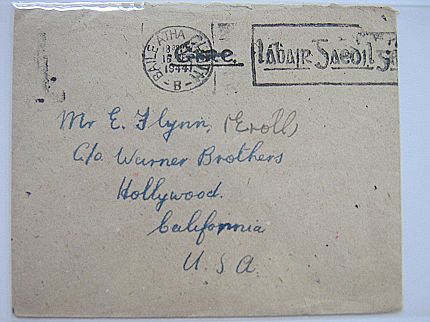 BAILE ATHA CLIATH
1944
B
Labair Gaedilge
Mr E. Flynn, (Eroll)
C/o. Warner Brothers
Hollywood.
California
U. S. A.